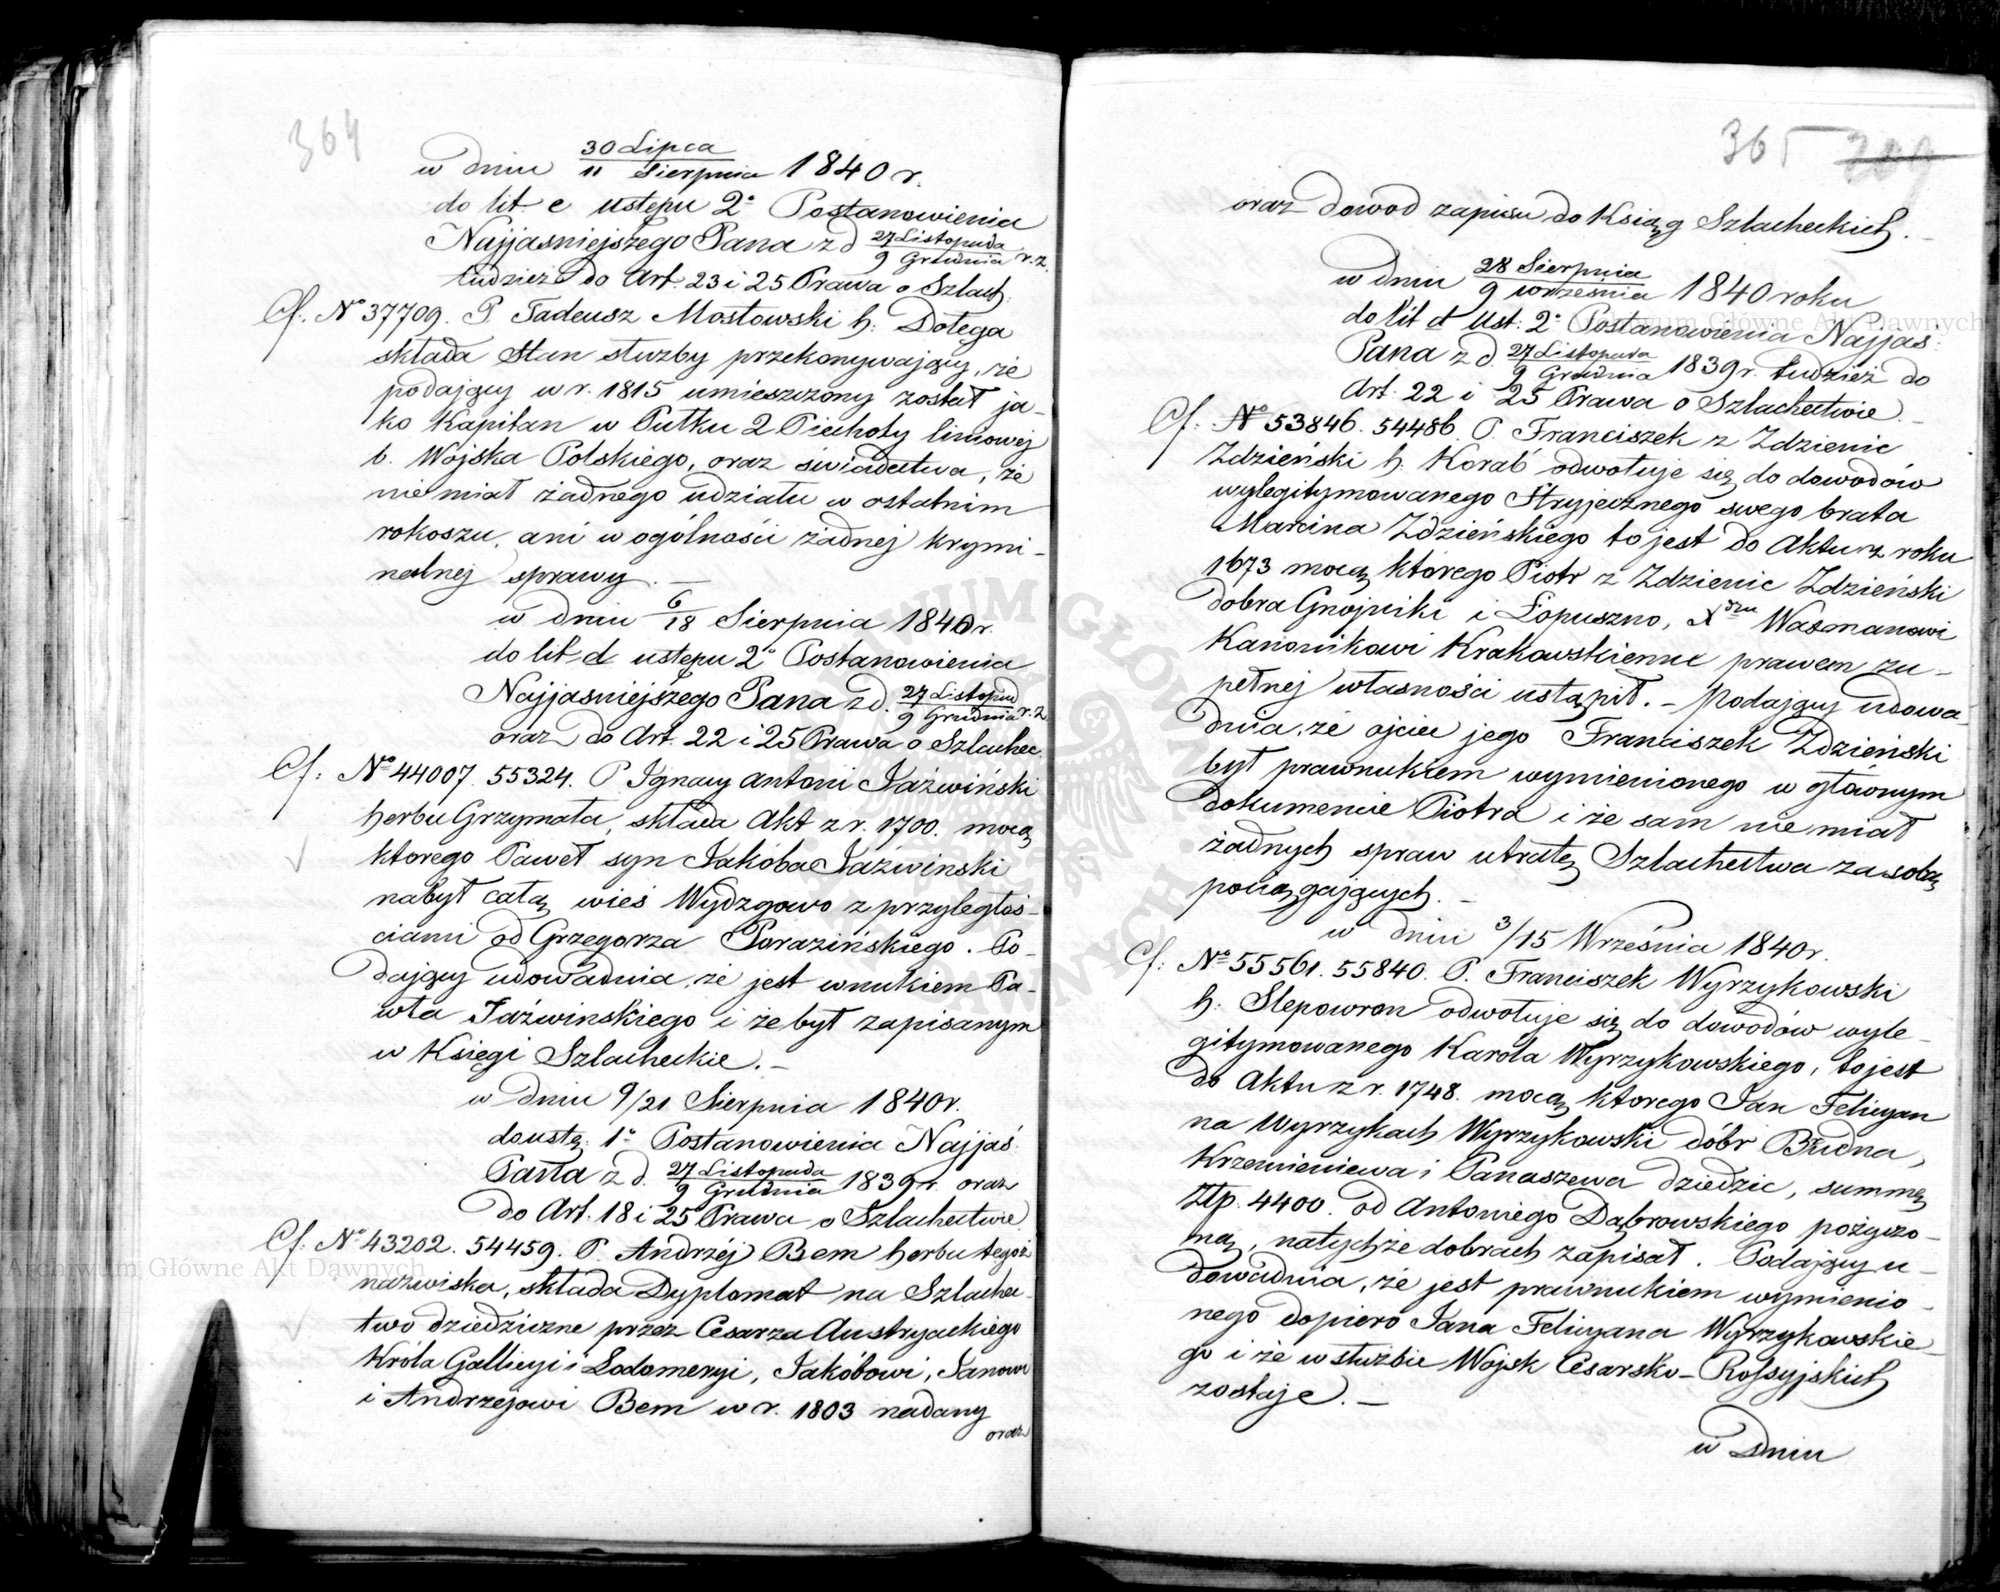 364
w dniu 30 Lipca / 11 Sierpnia 1840 r.
do lit. e ustępu 2° Postanowienia
Najjaśniejszego Pana z d 27 Listopada / 9 Grudnia r. z.
tudzież do Art. 23 i 25 Prawa o Szlach:
Cf. N° 37709. P Tadeusz Mostowski h: Dołęga
składa Stan służby przekonywający, że
podający w r. 1815 umieszczony został ja-
ko Kapitan w Pułku 2 Piechoty liniowej
b. Wojska Polskiego, oraz świadectwa, że
nie miał żadnego udziału w ostatnim
rokoszu, ani w ogólności żadnej krymi-
nalnej sprawy. —
w dniu 6/18 Sierpnia 1840 r.
do lit d ustępu 2° Postanowienia
Najjaśniejszego Pana z d. 27 Listopad / 9 Grudnia r. z
oraz do Art. 22 i 25 Prawa o Szlachec.
Cf: N° 44007. 55324. P Ignacy Antoni Jaźwiński
herbu Grzymała, składa Akt z r. 1700. mocą
ktorego Paweł syn Jakóba Jaźwinski
nabył całą wieś Wydzgowo z przyległoś-
ciami od Grzegorza Parazińskiego. Po-
dający udowadnia, że jest wnukiem Pa-
wła Jaźwinskiego i że był zapisanym
w Księgi Szlacheckie. —
w dniu 9/21 Sierpnia 1840 r.
do ustę: 1° Postanowienia Najjaś:
Pana z d. 27 Listopada / 9 Grudnia 1839 r. oraz
do Art. 18 i 25 Prawa o Szlachectwie.
Cf. N° 43202. 54459. P. Andrzéj Bem herbu tegoż
nazwiska, składa Dyplomat na Szlachec-
two dziedziczne przez Cesarza Austryackiego
Króla Gallicyi i Lodomeryi, Jakóbowi, Janowi
i Andrzejowi Bem w r. 1803 nadany
oraz
365 209
oraz dowod zapisu do Ksiąg Szlacheckich. —
w dniu 28 Sierpnia / 9 września 1840 roku
do lit d Ust: 2° Postanowienia Najjaś:
Pana z d. 27 Listopada / 9 Grudnia 1839 r. tudzież do
Art. 22 i 25 Prawa o Szlachectwie. —
Cf: N° 53846. 54486. P. Franciszek z Zdzienic
Zdzieński h. Korab odwołuje się do dowodów
wylegitymowanego Stryjecznego swego brata
Marcina Zdzieńskiego to jest do Aktu z roku
1673 mocą którego Piotr z Zdzienic Zdzieński
dobra Gnojniki i Łopuszno, X dzu Wasmanowi
Kanonikowi Krakowskiemu prawem zu-
pełnej własności ustąpił. — Podający udowa-
dnia, że ojciec jego Franciszek Zdzieński
był prawnukiem wymienionego w głównym
dokumencie Piotra i że sam nie miał
żadnych spraw utratę Szlachectwa za sobą
pociągających. —
w dniu 3/15 Września 1840 r.
Cf: N° 55561. 55840. P. Franciszek Wyrzykowski
h: Slepowron odwołuje się do dowodów wyle-
gitymowanego Karola Wyrzykowskiego, to jest
do Aktu z r. 1748. mocą ktorego Jan Felicyan
na Wyrzykach Wyrzykowski dóbr Brudna,
Krzemieniewa i Panaszewa dziedzic, summę
Złp. 4400. od Antoniego Dąbrowskiego pożyczo-
ną, na tychże dobrach zapisał. Podający u-
dowadnia, że jest prawnukiem wymienio-
nego dopiero Jana Felicyana Wyrzykowskie-
go i że w służbie Wojsk Cesarsko-Rossyjskich
zostaje. —
w Dniu
Archiwum Główne Akt Dawnych
Archiwum Główne Akt Dawnych
ARCHIWUM GŁÓWNE AKT DAWNYCH